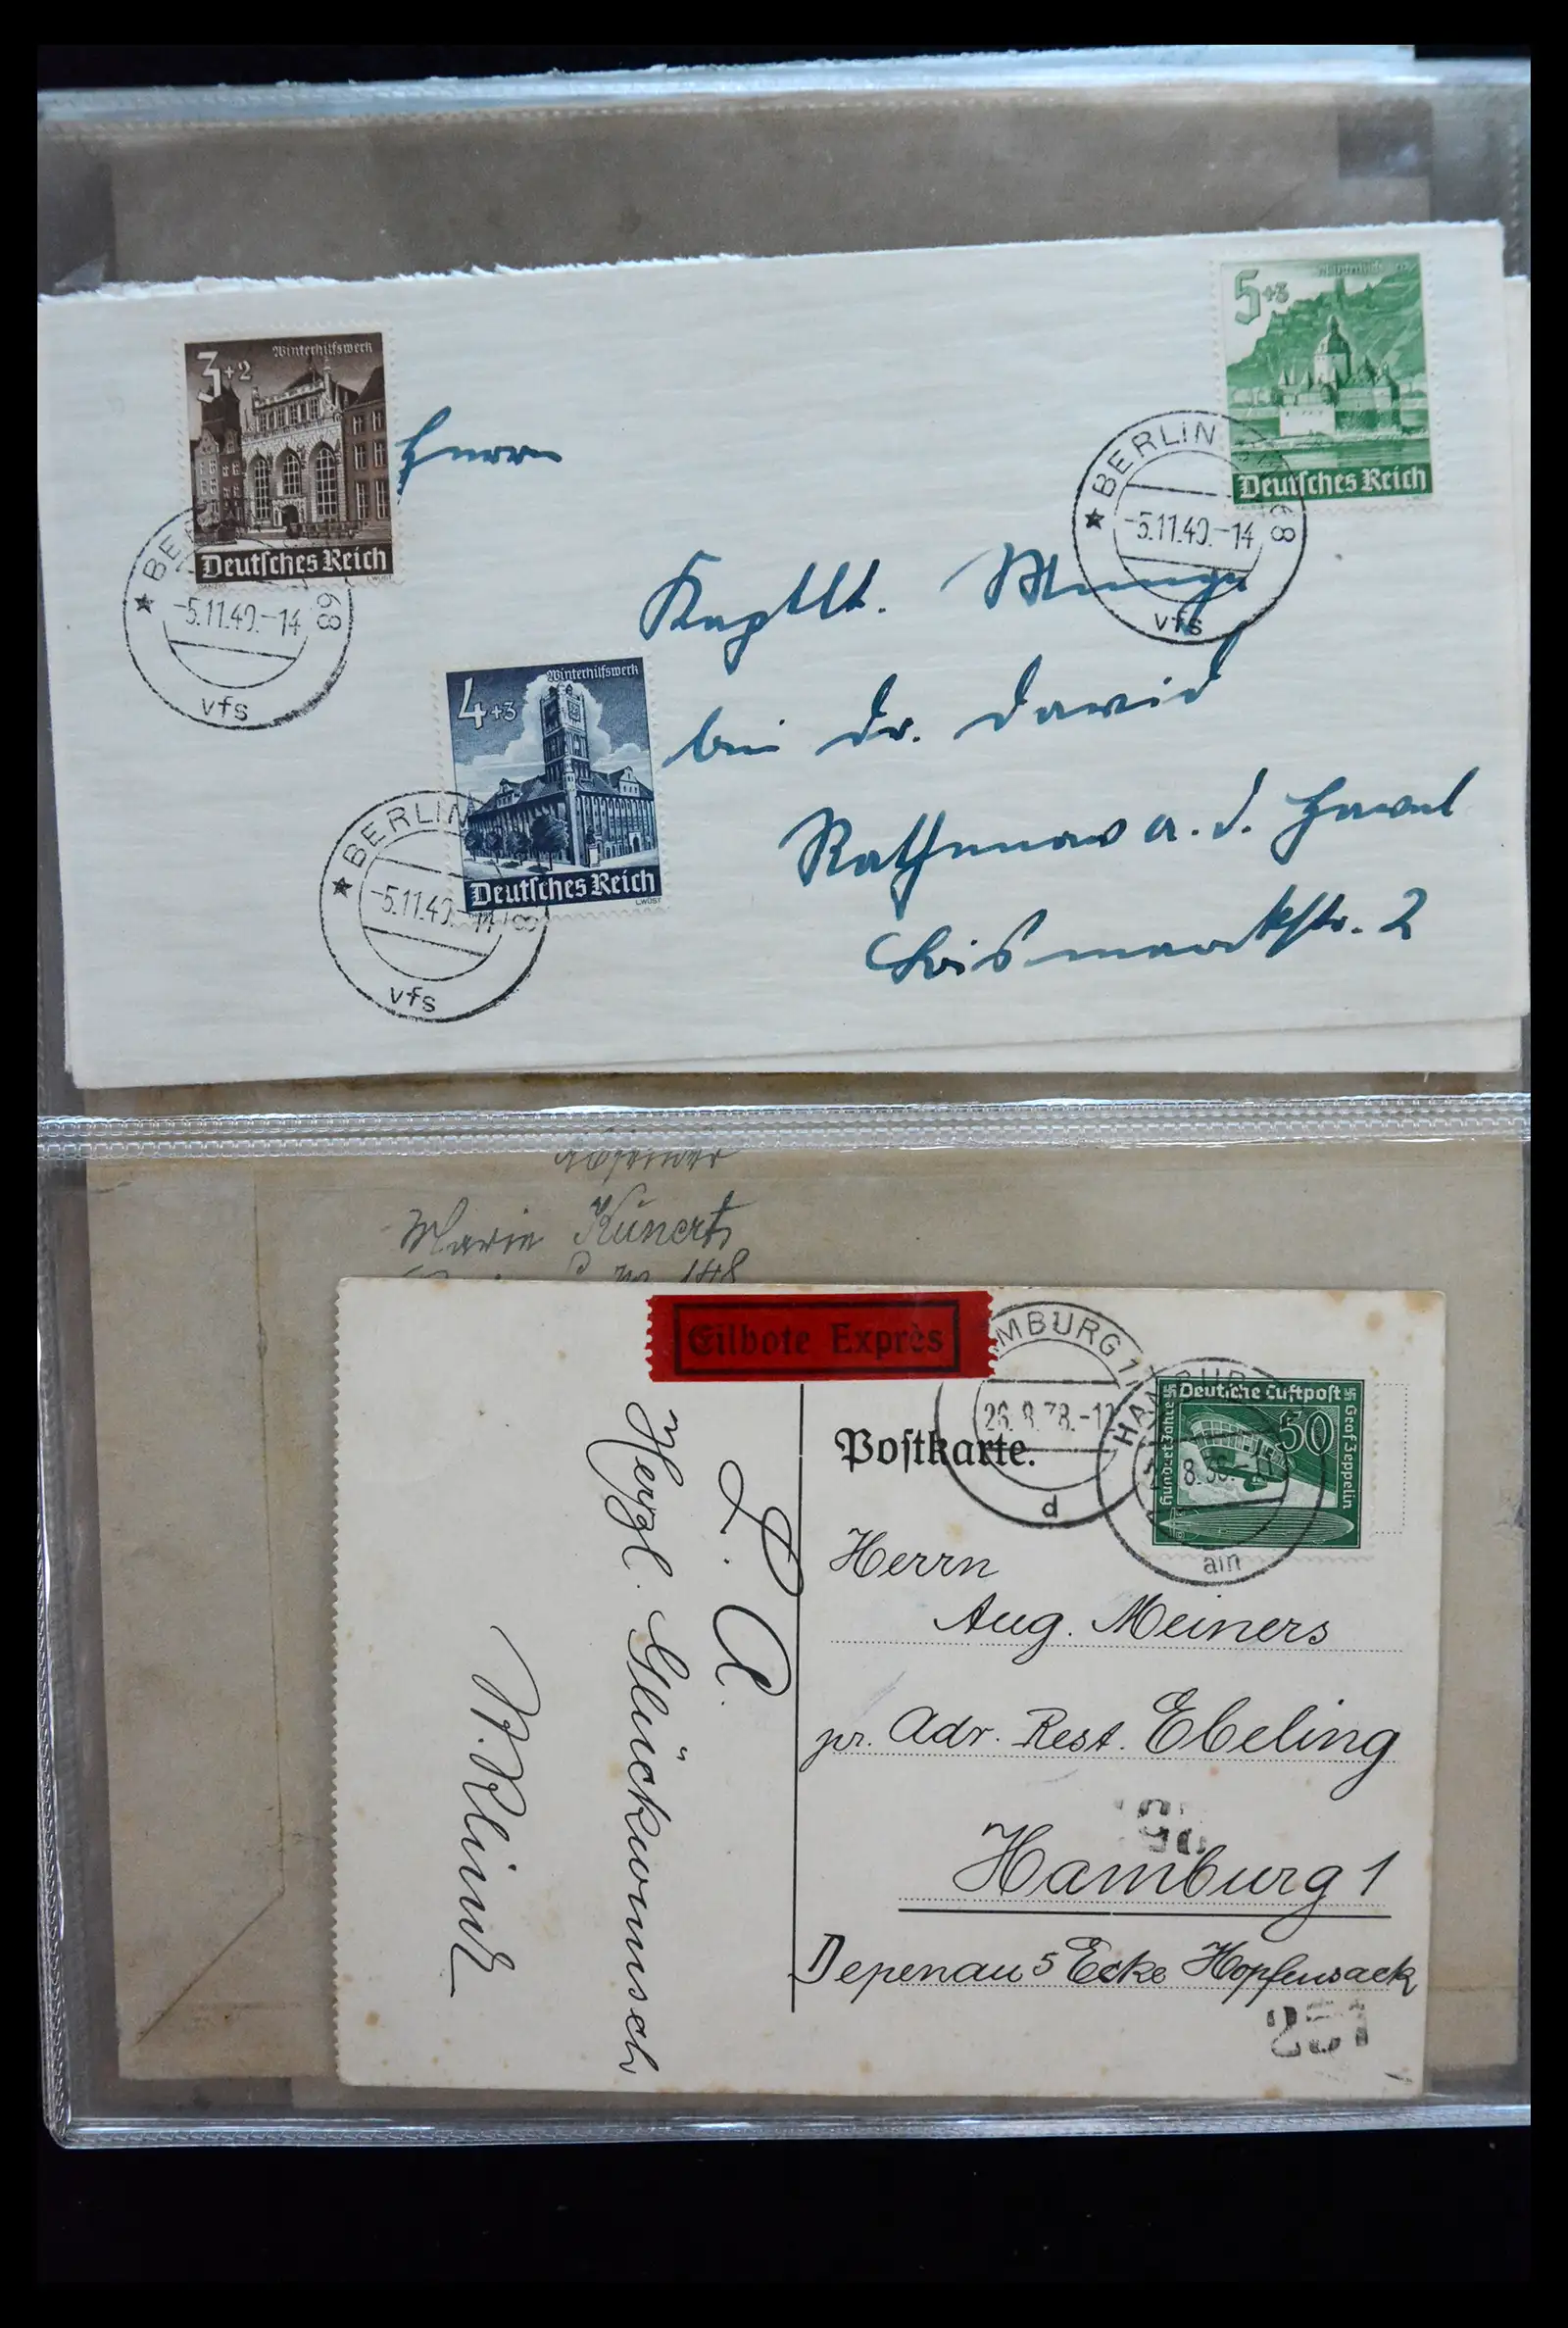 3+2 Winterhilfswerk
Deutsches Reich
DANZIG L.WÜST
BERLIN 68
-5.11.40.-14
vfs
5+3 Winterhilfswerk
Deutsches Reich
BERLIN SW 68
-5.11.40.-14
vfs
4+3 Winterhilfswerk
Deutsches Reich
L.WÜST
BERLIN 8
-5.11.40.-14
vfs
Herrn
Kaptlt.
bei Dr. David
Rathenow a. d. Havel
Bismarckstr. 2
Absender
Marie Kunert
148
Eilbote Exprès
HAMBURG 1
26.8.38.-12
d
HAMBURG
8.38.-11
ain
Deutsche Luftpost
50
Hundert Jahre
Graf Zeppelin
Postkarte.
Herrn
Aug. Meiners
pr. Adr. Rest. Ebeling
Hamburg 1
Depenau 5 Ecke Hopfensack
251
L. A.
Herzl. Glückwunsch